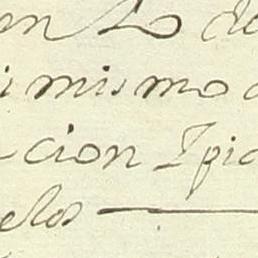 en Lo de
i mismo
cion Ipi
elos